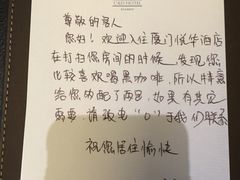 C&D HOTEL
尊敬的客人
您好！欢迎入住厦门悦华酒店
在打扫您房间的时候，发现您
也较喜欢喝黑咖啡，所以特意
给您内配了两包，如果有其它
需要，请致电“0”于我们联系
祝您居住愉快